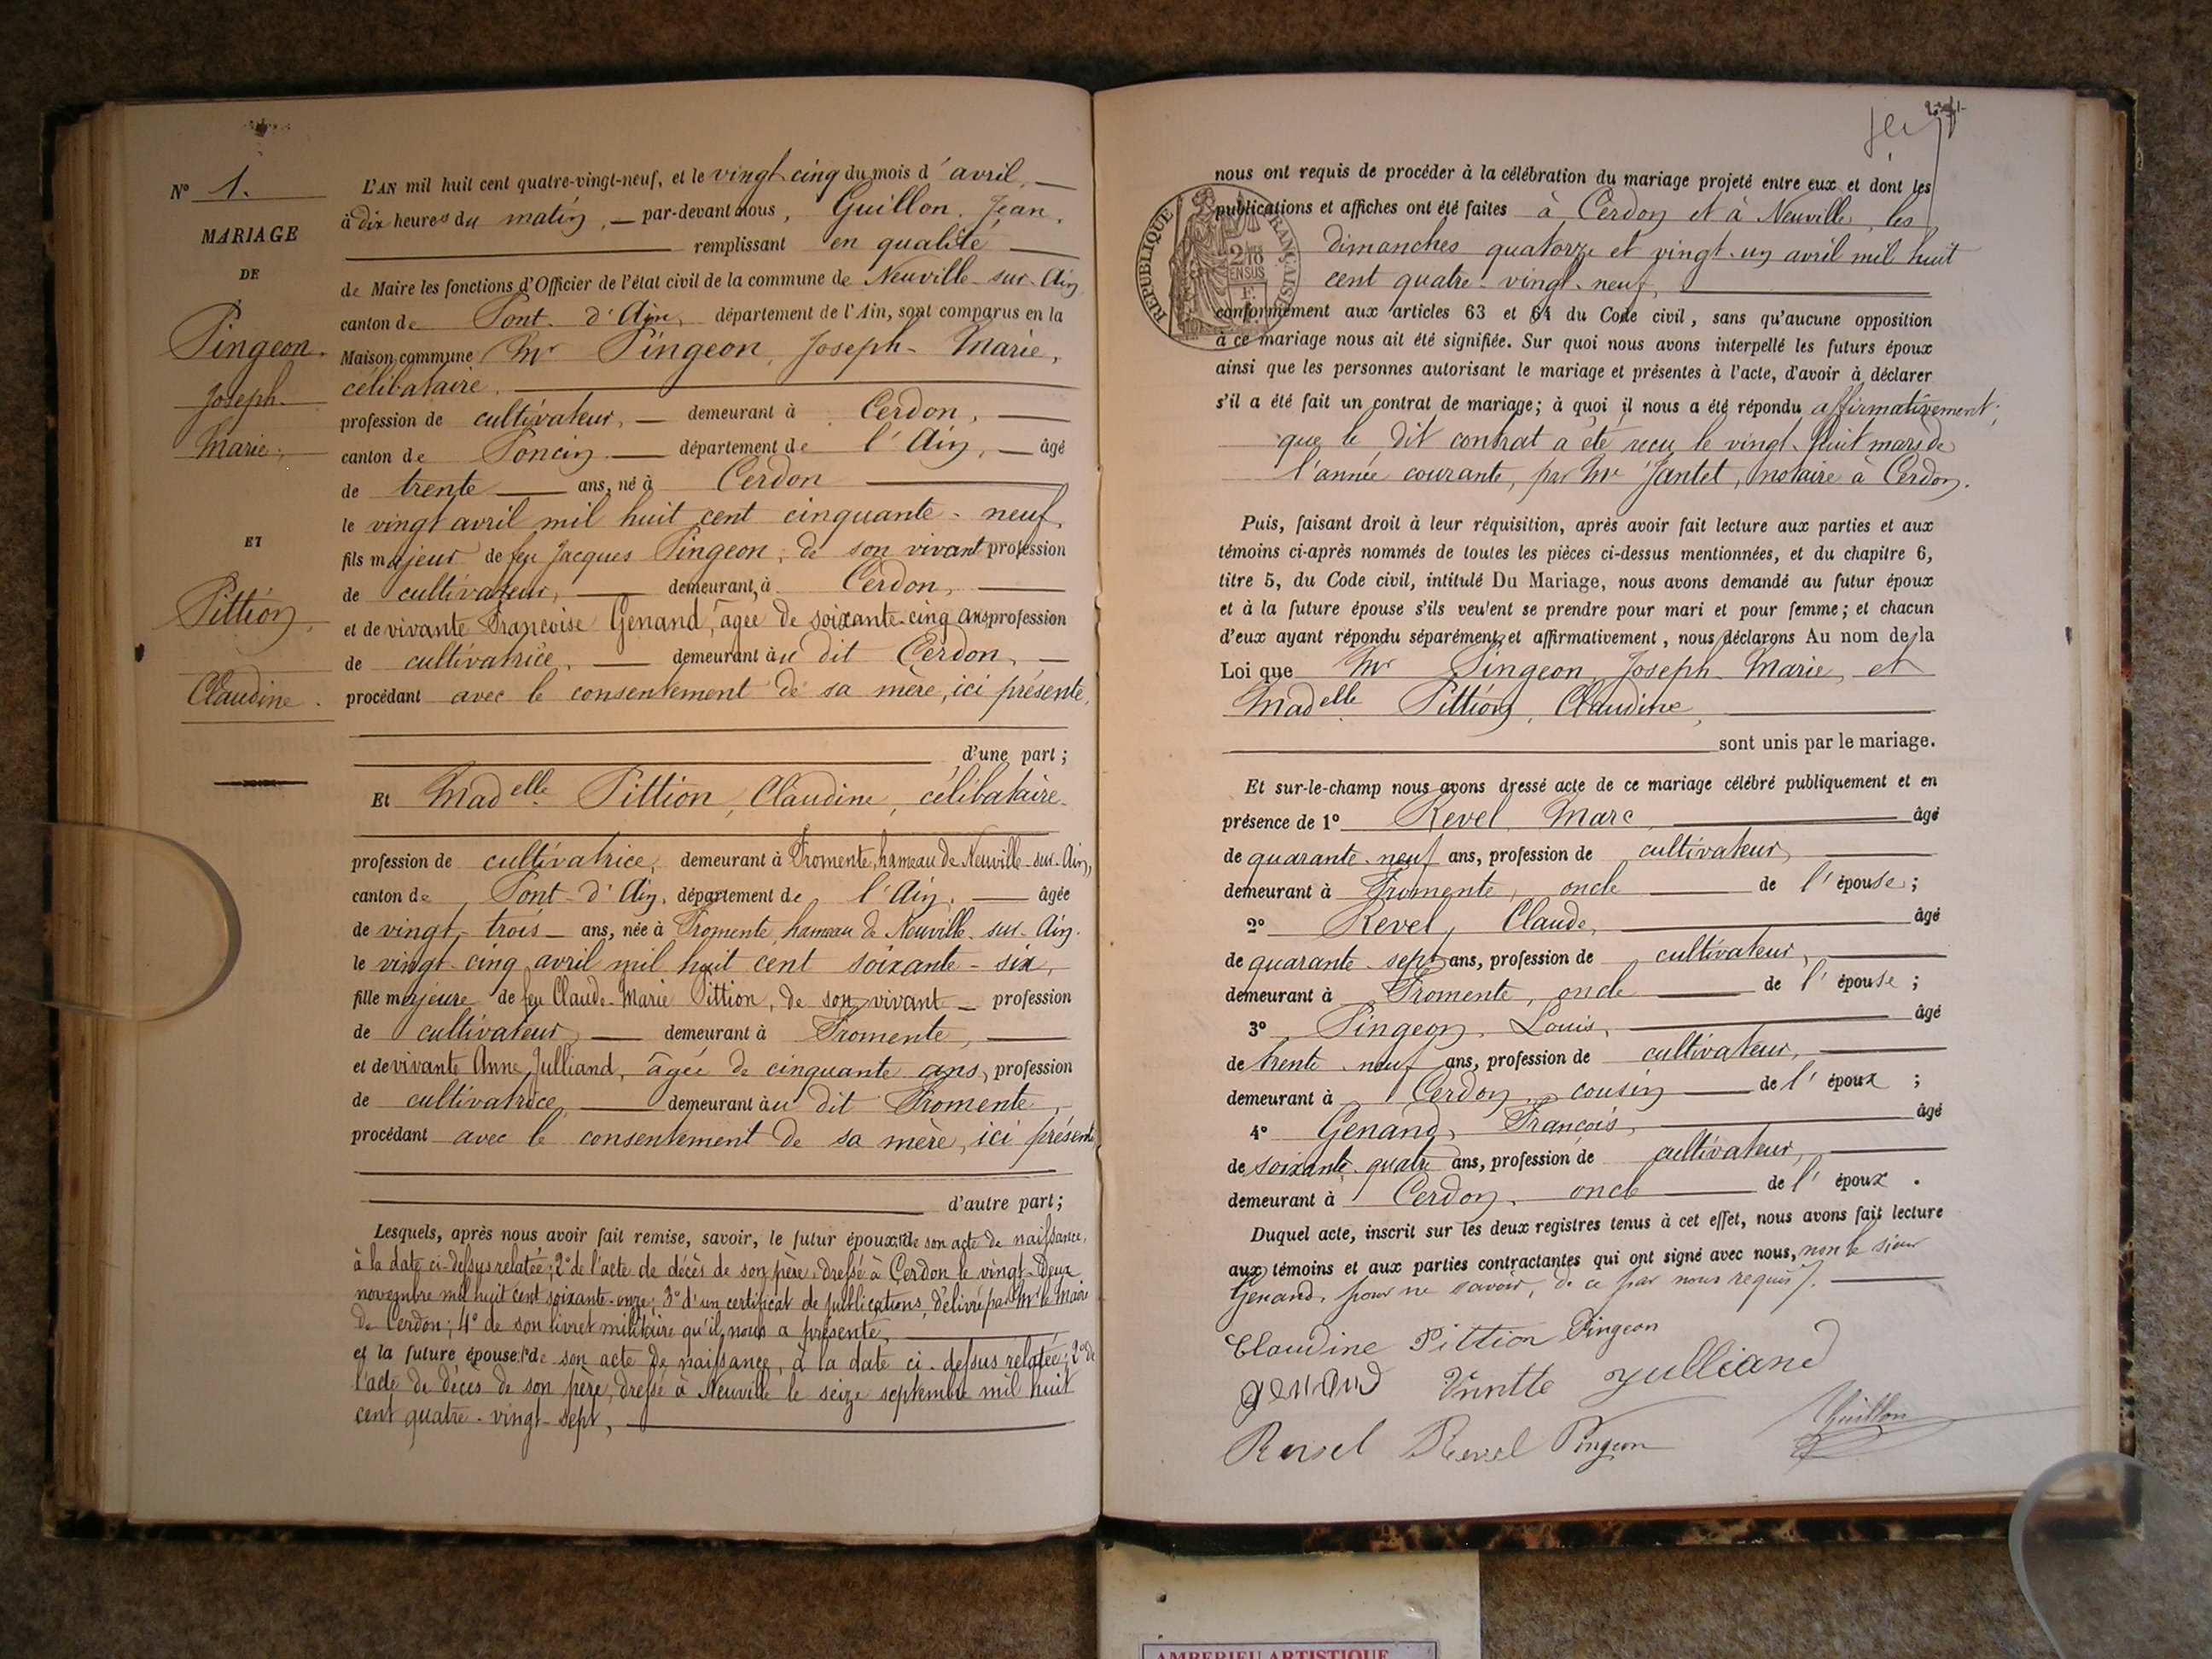 N° 1.
MARIAGE
DE
Pingeon.
Joseph-
Marie.
ET
Pittion,
Claudine.
L'AN mil huit cent quatre-vingt-neuf, et le vingt-cinq du mois d'avril,
à dix heures du matin, par-devant nous, Guillon, Jean,
remplissant en qualité
de Maire les fonctions d'Officier de l'état civil de la commune de Neuville-sur-Ain
canton de Pont-d'Ain, département de l'Ain, sont comparus en la
Maison commune Mr Pingeon, Joseph-Marie,
célibataire,
profession de cultivateur, demeurant à Cerdon,
canton de Poncin département de l'Ain, âgé
de trente ans, né à Cerdon
le vingt avril mil huit cent cinquante-neuf,
fils majeur de feu Jacques Pingeon, de son vivant profession
de cultivateur, demeurant à Cerdon,
et de vivante Françoise Genand, âgée de soixante-cinq ans profession
de cultivatrice, demeurant au dit Cerdon,
procédant avec le consentement de sa mère, ici présente,
d'une part ;
Et Madelle Pittion, Claudine, célibataire
profession de cultivatrice, demeurant à Fromente, hameau de Neuville-sur-Ain,
canton de Pont-d'Ain, département de l'Ain, âgée
de vingt-trois ans, née à Fromente, hameau de Neuville-sur-Ain.
le vingt-cinq avril mil huit cent soixante-six,
fille majeure de feu Claude-Marie Pittion, de son vivant profession
de cultivateur, demeurant à Fromente,
et de vivante Anne Julliand, âgée de cinquante ans, profession
de cultivatrice, demeurant au dit Fromente,
procédant avec le consentement de sa mère, ici présente
d'autre part ;
Lesquels, après nous avoir fait remise, savoir, le futur époux: 1° de son acte de naissance,
à la date ci-dessus relatée; 2° de l'acte de décès de son père, dressé à Cerdon le vingt-deux
novembre mil huit cent soixante-onze; 3° d'un certificat de publications, délivré par Mr le Maire
de Cerdon; 4° de son livret militaire qu'il nous a présenté,
et la future épouse: 1° de son acte de naissance, à la date ci-dessus relatée; 2° de
l'acte de décès de son père, dressé à Neuville le seize septembre mil huit
cent quatre-vingt-sept,
nous ont requis de procéder à la célébration du mariage projeté entre eux et dont les
publications et affiches ont été faites à Cerdon et à Neuville, les
dimanches quatorze et vingt-un avril mil huit
cent quatre-vingt-neuf,
RÉPUBLIQUE FRANÇAISE
conformément aux articles 63 et 64 du Code civil, sans qu'aucune opposition
à ce mariage nous ait été signifiée. Sur quoi nous avons interpellé les futurs époux
ainsi que les personnes autorisant le mariage et présentes à l'acte, d'avoir à déclarer
s'il a été fait un contrat de mariage; à quoi il nous a été répondu affirmativement;
que le dit contrat a été reçu le vingt-huit mars de
l'année courante, par Me Jantet, notaire à Cerdon.
Puis, faisant droit à leur réquisition, après avoir fait lecture aux parties et aux
témoins ci-après nommés de toutes les pièces ci-dessus mentionnées, et du chapitre 6,
titre 5, du Code civil, intitulé Du Mariage, nous avons demandé au futur époux
et à la future épouse s'ils veulent se prendre pour mari et pour femme; et chacun
d'eux ayant répondu séparément et affirmativement, nous déclarons Au nom de la
Loi que Mr Pingeon, Joseph-Marie, et
Madelle Pittion, Claudine,
sont unis par le mariage.
Et sur-le-champ nous avons dressé acte de ce mariage célébré publiquement et en
présence de 1° Revel Marc âgé
de quarante-neuf ans, profession de cultivateur,
demeurant à Fromente, oncle de l'épouse;
2° Revel, Claude, âgé
de quarante-sept ans, profession de cultivateur,
demeurant à Fromente, oncle de l'épouse;
3° Pingeon, Louis, âgé
de trente-neuf ans, profession de cultivateur,
demeurant à Cerdon, cousin de l'époux;
4° Genand, François, âgé
de soixante-quatre ans, profession de cultivateur,
demeurant à Cerdon, oncle de l'époux.
Duquel acte, inscrit sur les deux registres tenus à cet effet, nous avons fait lecture
aux témoins et aux parties contractantes qui ont signé avec nous, non le sieur
Genand, pour ne savoir, de ce par nous requis.
Claudine Pittion Pingeon
genand Julliand
Revel Revel Pingeon Guillon
AMBERIEU ARTISTIQUE